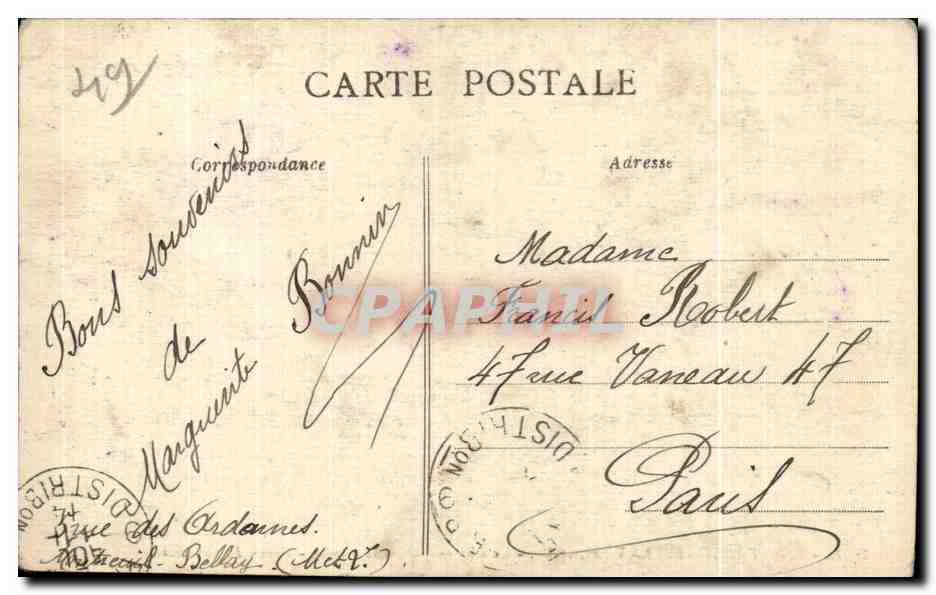 49
CARTE POSTALE
Correspondance
Adresse
Bons souvenirs
de
Marguerite Bonnin
rue des Ardennes.
Montreuil-Bellay (M et L.)
Madame
Francis Robert
47 rue Vaneau 47
Paris
DISTRIBON
DISTRIBON
CPAPHIL